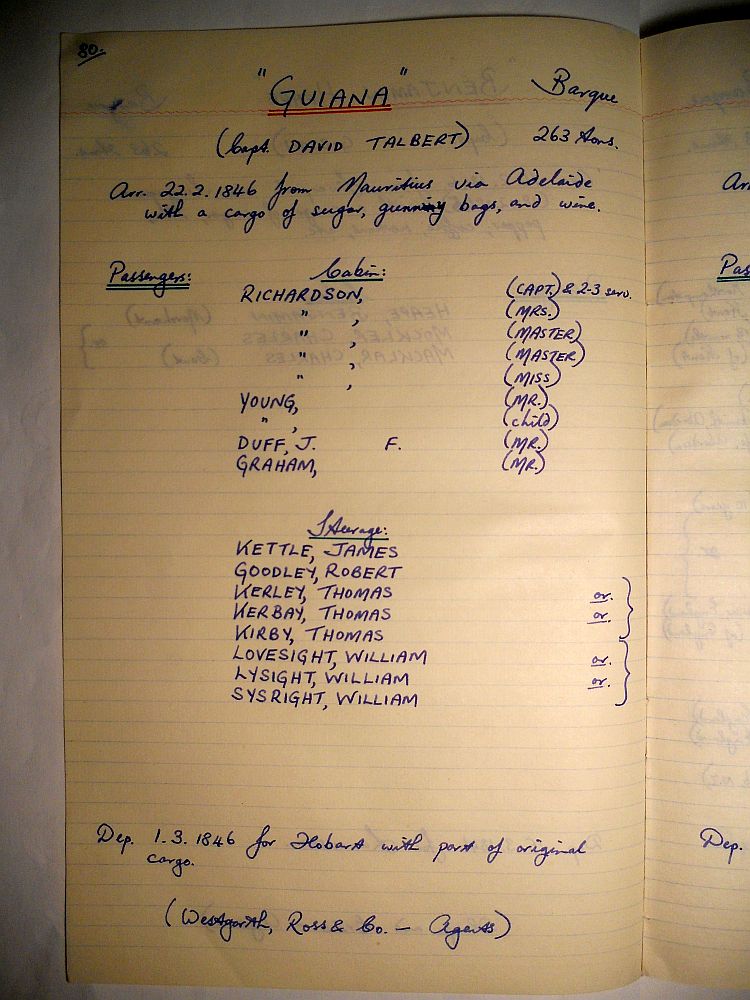 80.
"GUIANA" Barque
(Capt. DAVID TALBERT) 263 tons.
Arr. 22.2.1846 from Mauritius via Adelaide
with a cargo of sugar, gunny bags, and wine.
Passengers: Cabin:
RICHARDSON, (CAPT.) & 2-3 serv.
" , (MRS.)
" , (MASTER)
" , (MASTER)
" , (MISS)
YOUNG, (MR.)
" , (child)
DUFF, J. F. (MR.)
GRAHAM, (MR.)
Steerage:
KETTLE, JAMES
GOODLEY, ROBERT
KERLEY, THOMAS or.
KERBAY, THOMAS or.
KIRBY, THOMAS
LOVESIGHT, WILLIAM or.
LYSIGHT, WILLIAM or.
SYSRIGHT, WILLIAM
Dep. 1.3.1846 for Hobart with part of original
cargo.
(Westgarth, Ross & Co. — Agents)
Arr
Pas
Dep.